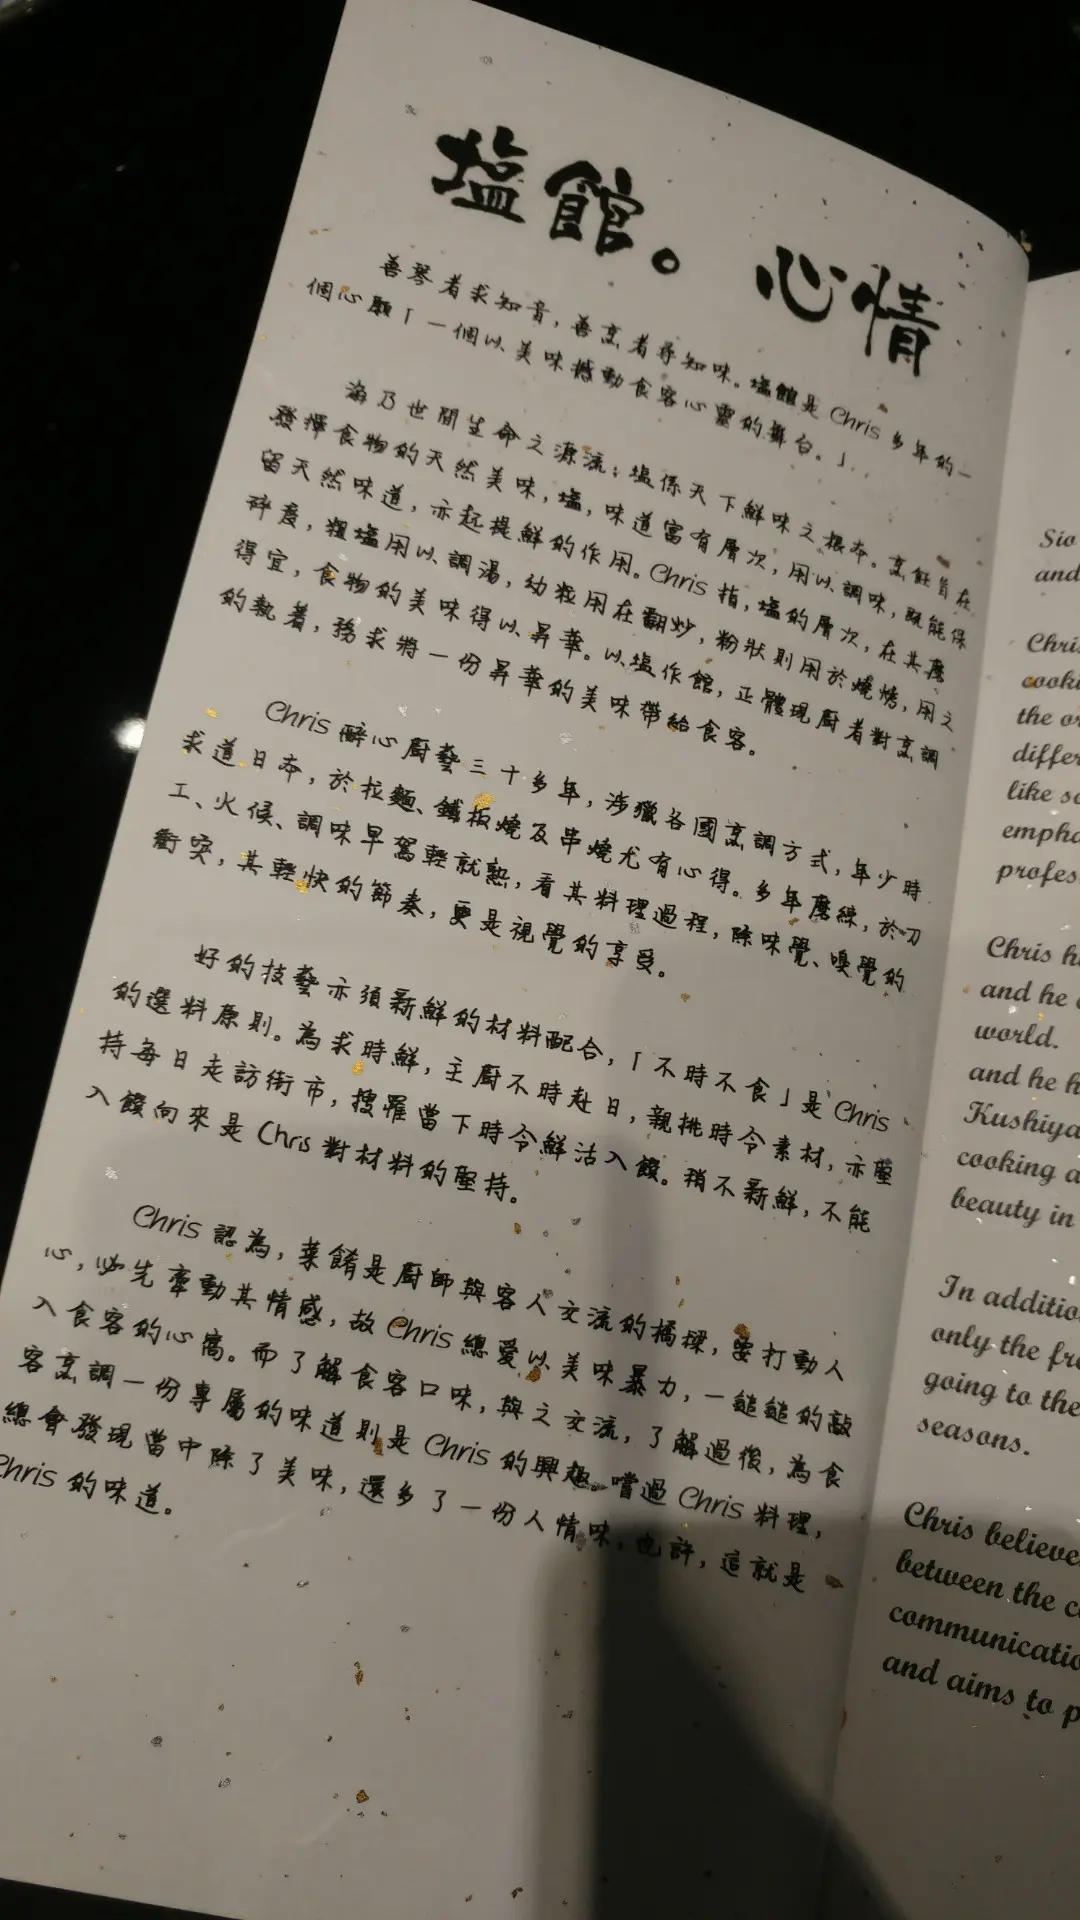 塩館。心情
善琴者求知音，善烹者尋知味。塩館是 Chris 多年的一
個心願「一個以美味撼動食客心靈的舞台。」
海乃世間生命之源流；塩係天下鮮味之根本。烹飪旨在
發揮食物的天然美味，塩，味道富有層次，用以調味，既能保
留天然味道，亦起提鮮的作用。Chris 指，塩的層次，在其磨
碎度，粗塩用以調湯，幼粒用在翻炒，粉狀則用於燒烤，用之
得宜，食物的美味得以昇華。以塩作館，正體現廚者對烹調
的執着，務求將一份昇華的美味帶給食客。
Chris 醉心廚藝三十多年，涉獵各國烹調方式，年少時
求道日本，於拉麵、鐵板燒及串燒尤有心得。多年磨練，於刀
工、火候、調味早駕輕就熟，看其料理過程，除味覺、嗅覺的
衝突，其輕快的節奏，更是視覺的享受。
好的技藝亦須新鮮的材料配合，「不時不食」是 Chris
的選料原則。為求時鮮，主廚不時赴日，親挑時令素材，亦堅
持每日走訪街市，搜羅當下時令鮮活入饌。稍不新鮮，不能
入饌向來是 Chris 對材料的堅持。
Chris 認為，菜餚是廚師與客人交流的橋樑，要打動人
心，必先牽動其情感，故 Chris 總愛以美味暴力，一鎚鎚的敲
入食客的心窩。而了解食客口味，與之交流，了解過後，為食
客烹調一份專屬的味道則是 Chris 的興趣。嚐過 Chris 料理，
總會發現當中除了美味，還多了一份人情味，也許，這就是
Chris 的味道。
Sio
and
Chris
cooki
the or
differ
like sa
empha
profes
Chris h
and he
world.
and he h
Kushiya
cooking a
beauty in
In addition
only the fre
going to the
seasons.
Chris believe
between the c
communicatio
and aims to p